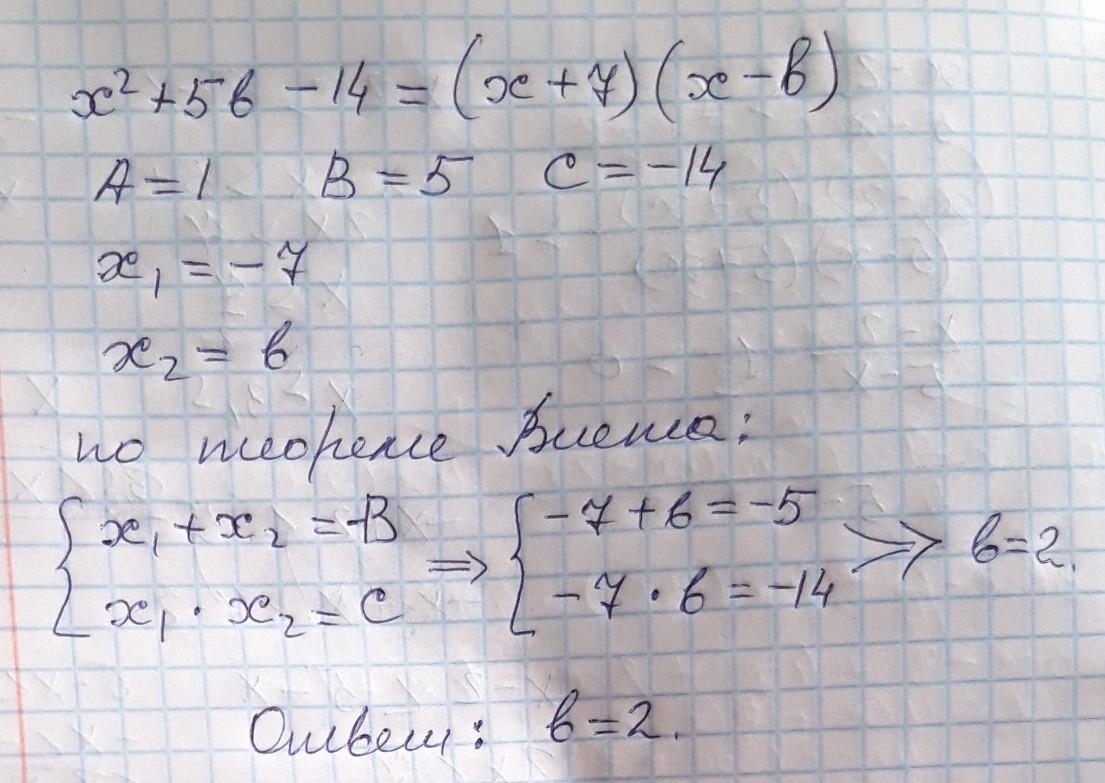 x² + 5b - 14 = (x + 7)(x - b)
A = 1 B = 5 C = -14
x₁ = -7
x₂ = b
по теореме Виета:
{ x₁ + x₂ = -B ⇒ { -7 + b = -5 ⇒ b = 2.
x₁ · x₂ = C -7 · b = -14
Ответ: b = 2.